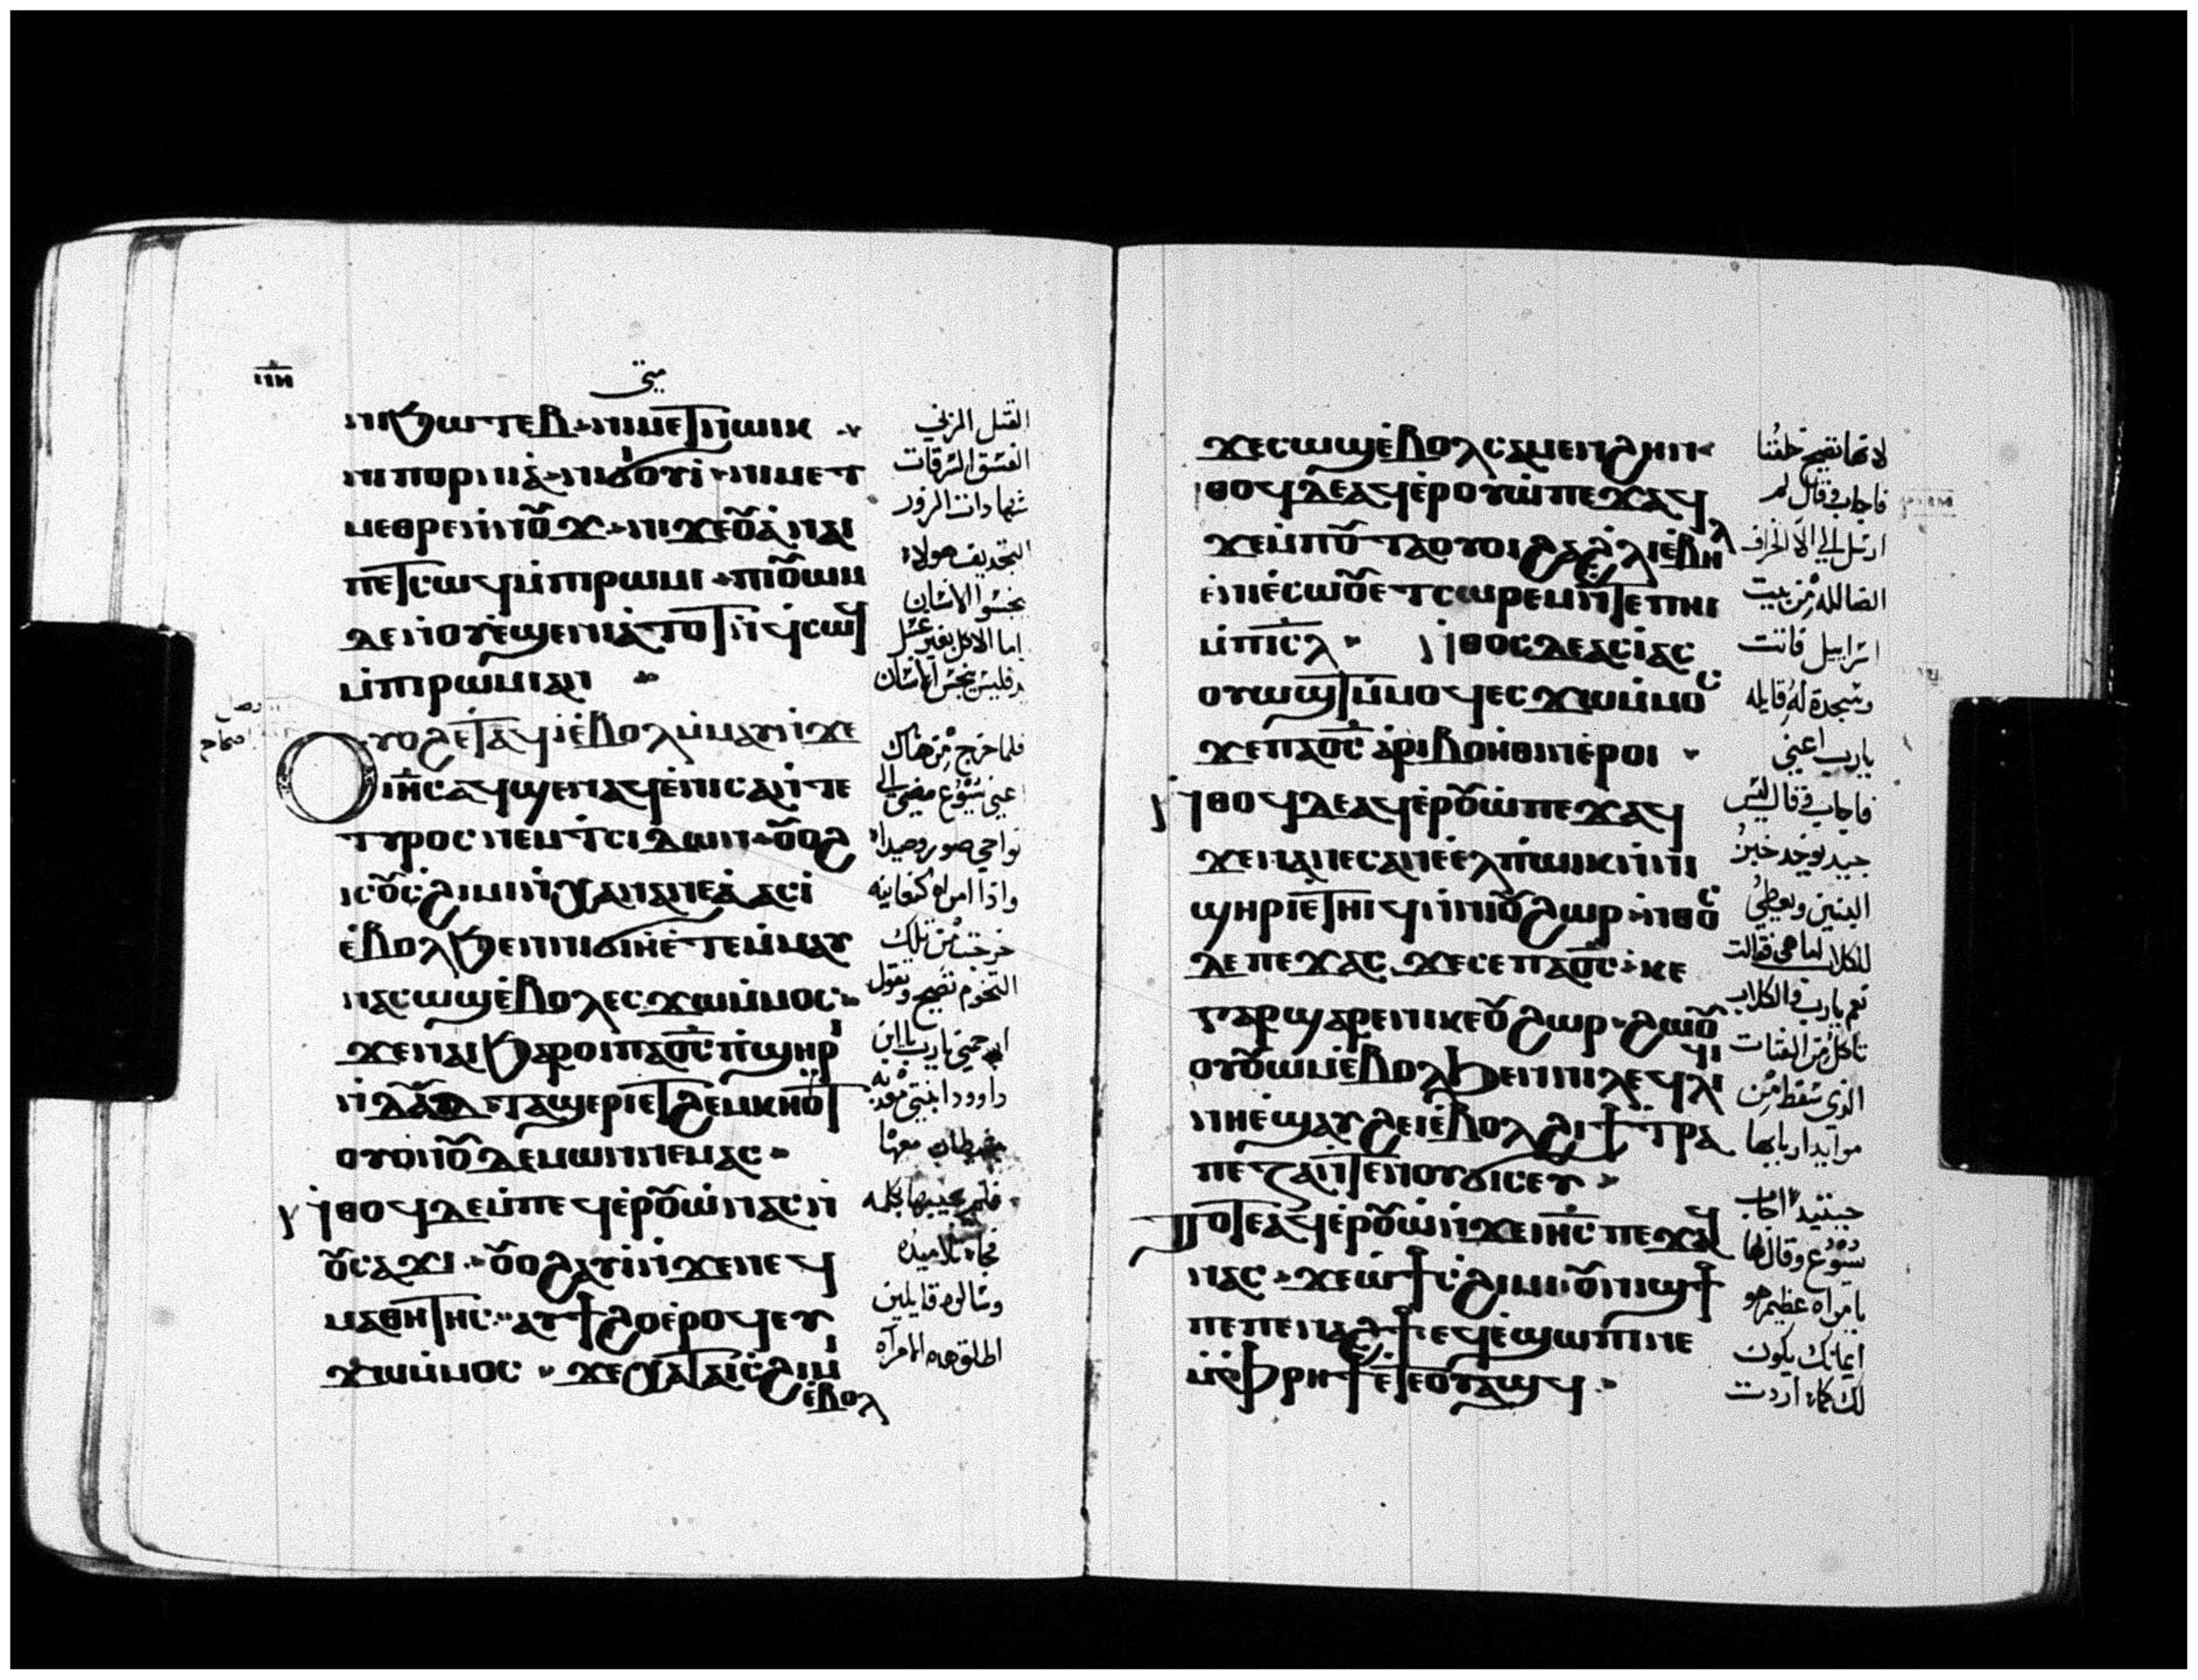 ⲛⲏ
متى
ⲛⲓϧⲱⲧⲉⲃ ⲛⲓⲙⲉⲧⲛⲱⲓⲕ
ⲛⲓⲡⲟⲣⲛⲓⲁ ⲛⲓϭⲓⲟⲩⲓ ⲛⲓⲙⲉⲧ
ⲙⲉⲑⲣⲉ ⲛⲛⲟⲩϫ ⲛⲓϫⲉⲟⲩⲁ ⲛⲁⲓ
ⲡⲉⲧⲥⲱϥ ⲙⲡⲓⲣⲱⲙⲓ ⲡⲓⲟⲩⲱⲙ
ⲇⲉ ⲛⲟⲩⲉϣⲉⲛ ⲓⲁ ⲧⲟⲧ ⲛϥⲥⲱϥ
ⲙⲡⲓⲣⲱⲙⲓ ⲁⲛ
ⲟⲩⲟϩ ⲉⲧⲁϥⲓ ⲉⲃⲟⲗ ⲙⲙⲁⲩ ⲛϫⲉ
ⲓⲏⲥ ⲁϥϣⲉⲛⲁϥ ⲉⲛⲓⲥⲁ ⲛⲧⲉ
ⲧⲩⲣⲟⲥ ⲛⲉⲙ ⲧⲥⲓⲇⲱⲛ ⲟⲩⲟϩ
ⲓⲥ ⲟⲩⲥϩⲓⲙⲓ ⲛⲭⲁⲛⲁⲛⲉⲁ ⲁⲥⲓ
ⲉⲃⲟⲗϧⲉⲛ ⲛⲓϭⲓⲏ ⲉⲧⲉⲙⲙⲁⲩ
ⲛⲁⲥⲱϣ ⲉⲃⲟⲗ ⲉⲥϫⲱ ⲙⲙⲟⲥ
ϫⲉ ⲛⲁⲓ ϧⲁⲣⲟⲓ ⲡⲁⲟⲥ ⲡϣⲏⲣⲓ
ⲛⲇⲁⲇ ⲧⲁϣⲉⲣⲓ ⲉⲧϩⲉⲙⲕⲏⲟⲩⲧ
ⲟⲩⲟⲛ ⲟⲩⲇⲉⲙⲱⲛ ⲛⲉⲙⲁⲥ
ⲛⲑⲟϥ ⲇⲉ ⲙⲡⲉϥⲉⲣⲟⲩⲱ ⲛⲁⲥ ⲛ
ⲟⲩⲥⲁϫⲓ ⲟⲩⲟϩ ⲁⲩⲓ ⲛϫⲉ ⲛⲉϥ
ⲙⲁⲑⲏⲧⲏⲥ ⲁⲩϯϩⲟ ⲉⲣⲟϥ ⲉⲩ
ϫⲱ ⲙⲙⲟⲥ ϫⲉ ⲭⲁ ⲧⲁⲓⲥϩⲓⲙⲓ
ⲉⲃⲟⲗ
القتل الزنى
الفسق السرقات
شهادات الزور
التجديف هولاء
ينجسوا الانسان
اما الاكل بغير غسل
فليس ينجس الانسان
فلما خرج من هناك
عنى يسوع مضى الى
نواحى صور وصيدا
واذا امراه كنعانيه
خرجت من تلك
التخوم تصيح وتقول
ارحمنى يارب ياابن
داوود ابنتى معذبه
شيطان معها
فلم يجيبها بكلمه
فجاء تلاميذه
وسالوه قايلين
اطلق هذه الامراه
ϫⲉ ⲥⲱϣ ⲉⲃⲟⲗ ⲥⲁⲙⲉⲛϩⲏⲛ
ⲛⲑⲟϥ ⲇⲉ ⲁϥⲉⲣⲟⲩⲱ ⲡⲉϫⲁϥ
ϫⲉ ⲙⲡⲟⲩⲧⲁⲟⲩⲟⲓ ϩⲁ ϩⲗⲓ ⲉⲃⲏⲗ
ⲉⲛⲓⲉⲥⲱⲟⲩ ⲉⲧⲥⲱⲣⲉⲙ ⲛⲧⲉ ⲡⲏⲓ
ⲙⲡⲓⲥⲗ ⲛⲑⲟⲥ ⲇⲉ ⲁⲥⲓ ⲁⲥ
ⲟⲩⲱϣⲧ ⲙⲙⲟϥ ⲉⲥϫⲱ ⲙⲙⲟⲥ
ϫⲉ ⲡⲁⲟⲥ ⲁⲣⲓⲃⲟⲏⲑⲓⲛ ⲉⲣⲟⲓ
ⲛⲑⲟϥ ⲇⲉ ⲁϥⲉⲣⲟⲩⲱ ⲡⲉϫⲁϥ
ϫⲉ ⲛⲁⲛⲉⲥ ⲁⲛ ⲉⲉⲗ ⲡⲱⲓⲕ ⲛⲛⲓ
ϣⲏⲣⲓ ⲉⲧⲏⲓϥ ⲛⲛⲓⲟⲩϩⲱⲣ ⲛⲑⲟⲥ
ⲇⲉ ⲡⲉϫⲁⲥ ϫⲉ ⲥⲉ ⲡⲁⲟⲥ ⲕⲉ
ⲅⲁⲣ ϣⲁⲣⲉ ⲛⲓⲕⲉⲟⲩϩⲱⲣ ϩⲱⲟⲩ
ⲟⲩⲟⲩⲱⲙ ⲉⲃⲟⲗϧⲉⲛ ⲛⲓⲗⲉϥⲗⲓϥⲓ
ⲛⲏ ⲉϣⲁⲩϩⲉⲓ ⲉⲃⲟⲗϩⲓ ϯⲧⲣⲁ
ⲡⲉⲍⲁ ⲛⲧⲉ ⲛⲟⲩϭⲓⲥⲉⲩ
ⲧⲟⲧⲉ ⲁϥⲉⲣⲟⲩⲱ ⲛϫⲉ ⲓⲏⲥ ⲡⲉϫⲁϥ
ⲛⲁⲥ ϫⲉ ⲱ ϯⲥϩⲓⲙⲓ ⲟⲩⲛⲓϣϯ
ⲡⲉ ⲡⲉⲛⲁϩϯ ⲉϥⲉϣⲱⲡⲓ ⲛⲉ
ⲙⲫⲣⲏϯ ⲉⲧⲉⲟⲩⲁϣϥ
لانها تصيح خلفنا
فاجاب وقال لم
ارسل الى الا الخراف
الضالله من بيت
اسراييل فاتت
وسجدة له قايله
يارب اعنى
فاجاب وقال ليس
جيد يوخد خبز
البنين ويعطى
للكلاب اما هى فقالت
نعم يارب والكلاب
تاكل من الفتات
الذى سقط من
موايد اربابها
حينيد اجاب
يسوع وقال لها
يامراه عظيم هو
ايمانك يكون
لك كما اردت